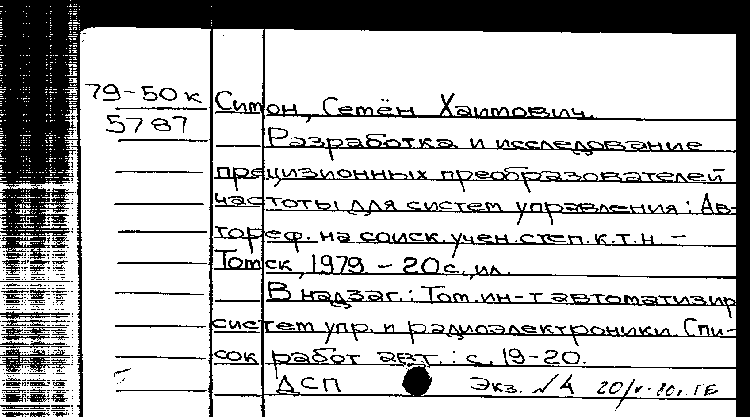 79-50к
5787
Симон, Семён Хаимович.
Разработка и исследование
прецизионных преобразователей
частоты для систем управления: Ав-
тореф. на соиск. учен. степ. к.т.н. –
Томск, 1979. – 20с., ил.
В надзаг.: Том. ин-т автоматизир
систем упр. и радиоэлектроники. Спи-
сок работ авт.: с. 19-20.
ДСП Экз. №4